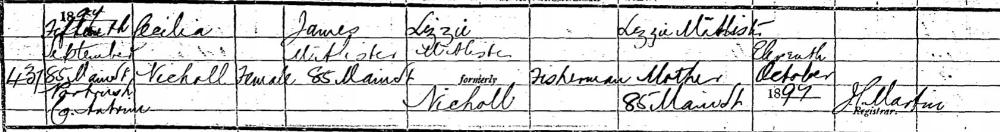 1897
Fifteenth Cecilia James Lizzie Lizzie McAlister
September McAlister McAlister Eleventh
431 85 Main St Nicholl Female 85 Main St formerly Fisherman Mother October
Portrush Nicholl 85 Main St 1897 J.C. Martin
Co. Antrim Registrar.